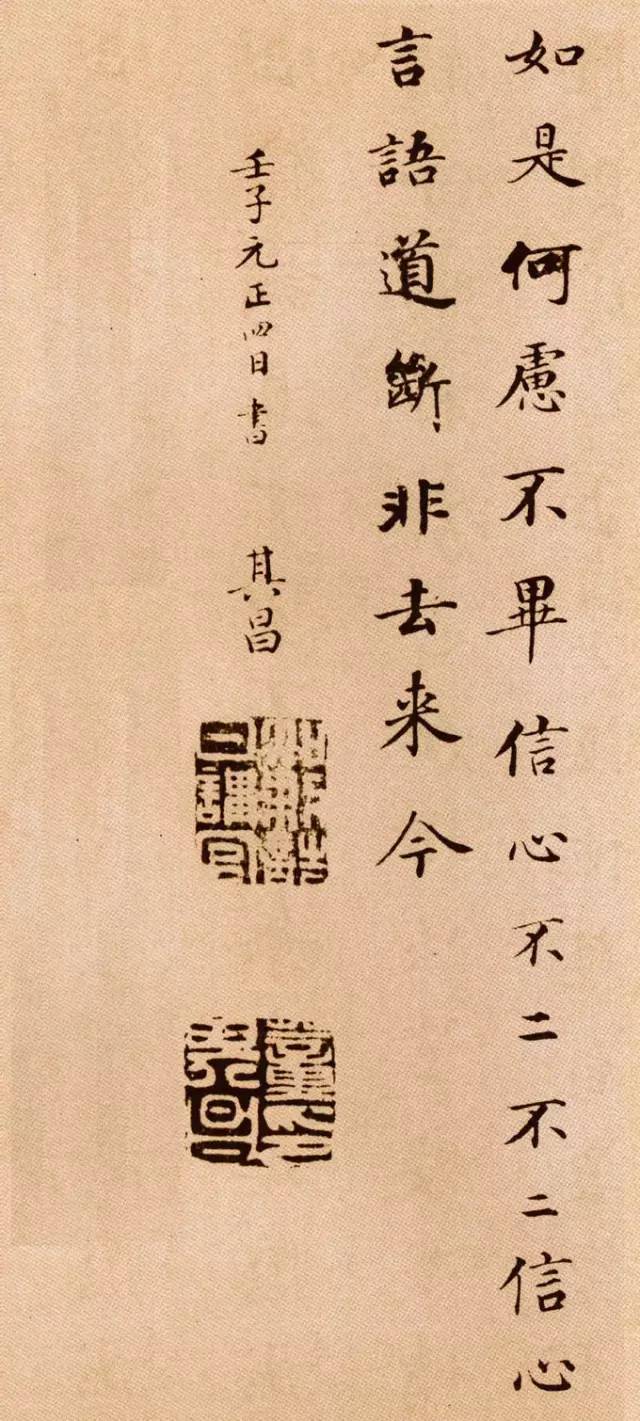 如是何慮不畢信心不二不二信心
言語道斷非去来今
壬子元正四日書 其昌